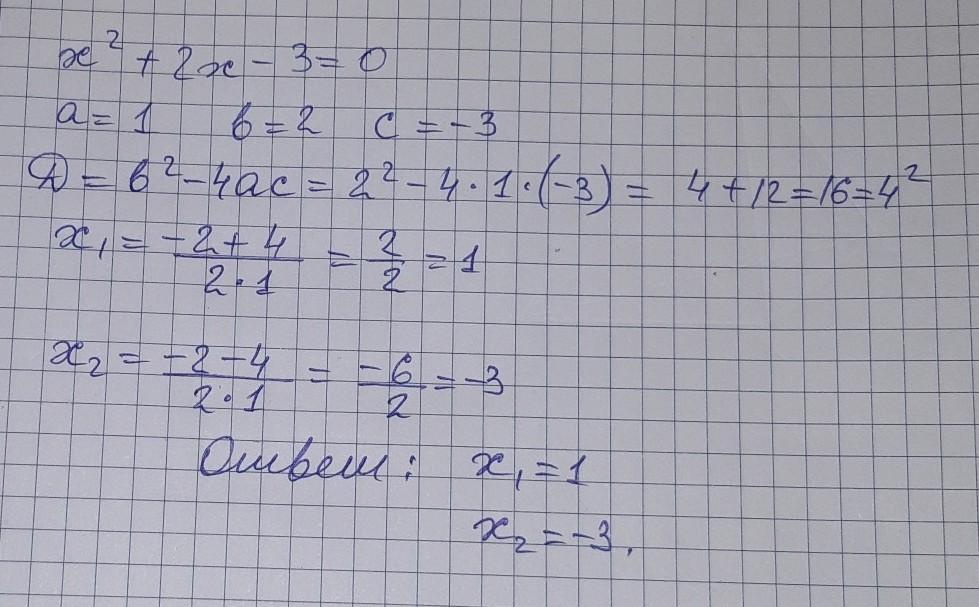 x² + 2x - 3 = 0
a = 1 b = 2 c = -3
D = b² - 4ac = 2² - 4 · 1 · (-3) = 4 + 12 = 16 = 4²
x₁ = (-2 + 4)/(2 · 1) = 2/2 = 1
x₂ = (-2 - 4)/(2 · 1) = -6/2 = -3
Ответ: x₁ = 1
x₂ = -3.